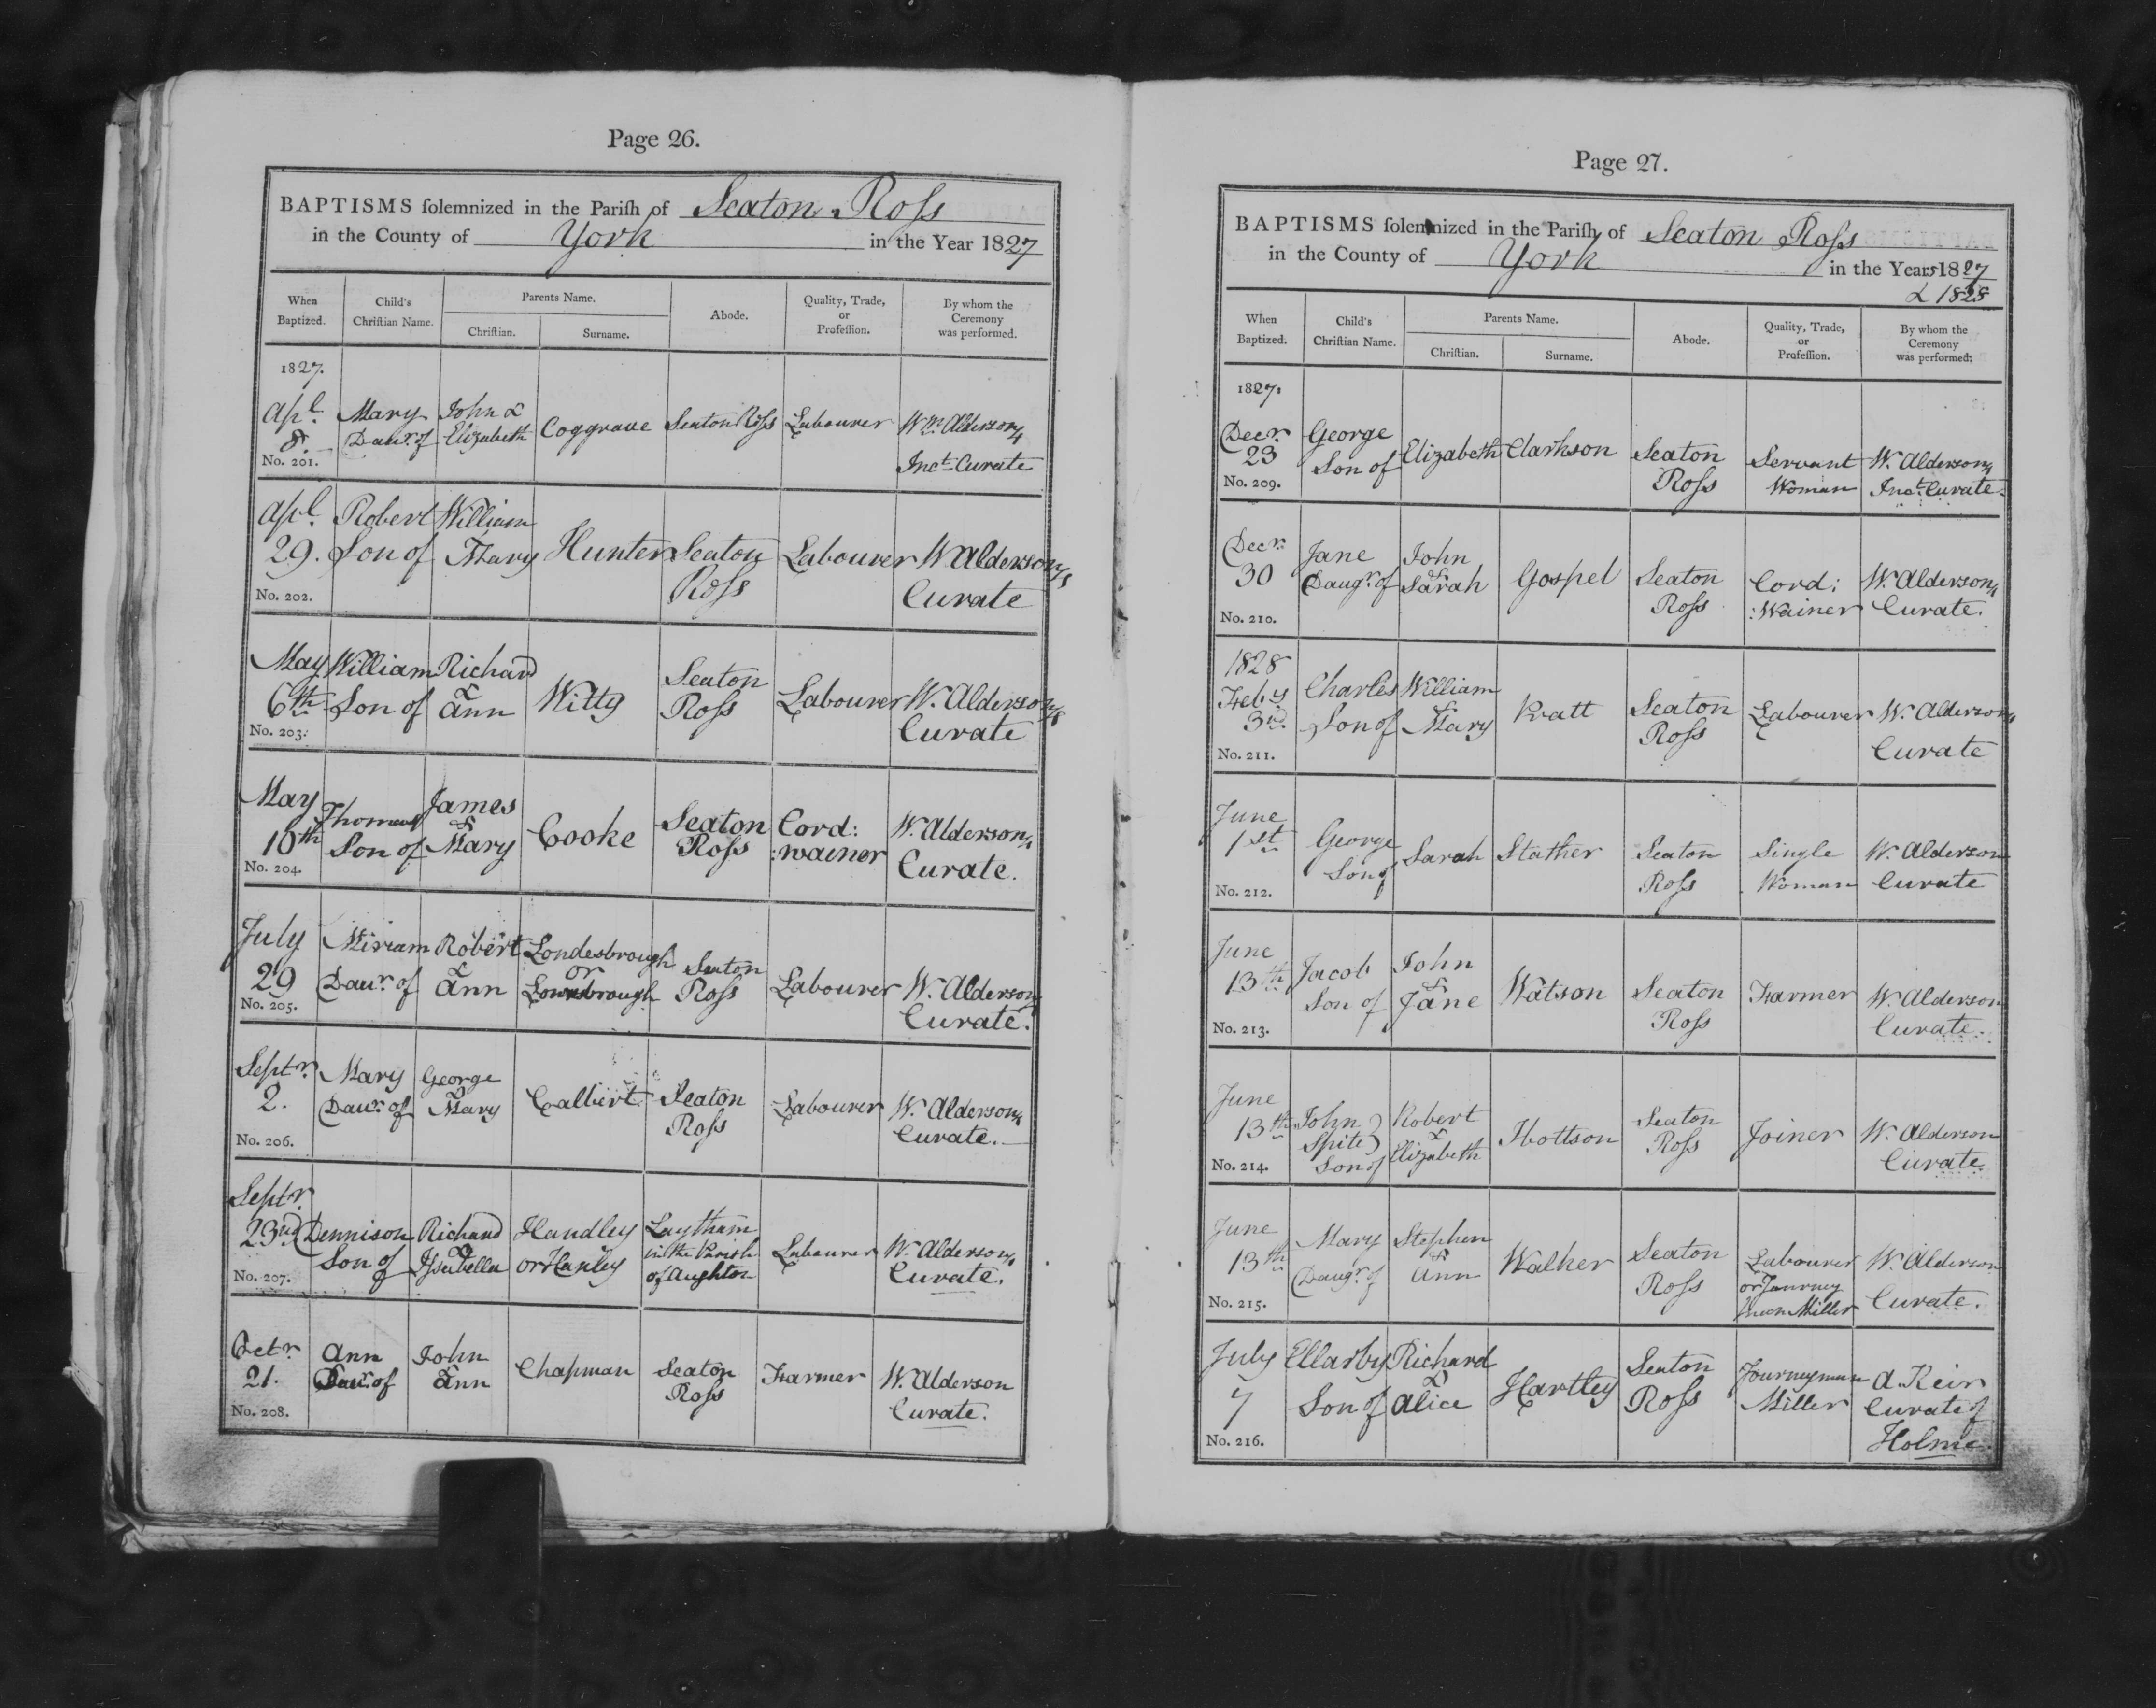 Page 26.
BAPTISMS ſolemnized in the Pariſh of Seaton Roſs
in the County of York in the Year 1827
When Baptized. Child's Chriſtian Name. Parents Name. Chriſtian. Surname. Abode. Quality, Trade, or Profeſſion. By whom the Ceremony was performed.
1827.
Apl. 8. No. 201. Mary Daur. of John & Elizabeth Coggrave Seaton Roſs Labourer Wm. Alderson, Inct. Curate
Apl. 29. No. 202. Robert Son of William & Mary Hunter Seaton Roſs Labourer W Alderson, Curate
May 6th No. 203. William Son of Richard & Ann Witty Seaton Roſs Labourer W. Alderson, Curate
May 10th No. 204. Thomas Son of James & Mary Cooke Seaton Roſs Cord: :wainer W. Alderson, Curate.
July 29 No. 205. Miriam Daur. of Robert & Ann Londesbrough or Lownsbrough Seaton Roſs Labourer W. Alderson, Curate.
Septr. 2. No. 206. Mary Daur. of George & Mary Calbert Seaton Roſs Labourer W. Alderson, Curate.
Septr. 23rd No. 207. Dennison Son of Richard & Iſsabella Handley or Hanley Laytham in the Parish of Aughton Labourer W. Alderson, Curate.
Octr. 21. No. 208. Ann Daur. of John & Ann Chapman Seaton Roſs Farmer W. Alderson Curate.
Page 27.
BAPTISMS ſolemnized in the Pariſh of Seaton Roſs
in the County of York in the Years 1827
& 1828
When Baptized. Child's Chriſtian Name. Parents Name. Chriſtian. Surname. Abode. Quality, Trade, or Profeſſion. By whom the Ceremony was performed.
1827.
Decr. 23 No. 209. George Son of Elizabeth Clarkson Seaton Roſs Servant Woman W. Alderson, Inct. Curate.
Decr. 30 No. 210. Jane Daugr. of John & Sarah Gospel Seaton Roſs Cord: :Wainer W. Alderson, Curate.
1828
Feby 3rd No. 211. Charles Son of William & Mary Pratt Seaton Roſs Labourer W. Alderson, Curate
June 1st No. 212. George Son of Sarah Stather Seaton Roſs Single Woman W. Alderson Curate
June 13th No. 213. Jacob Son of John & Jane Watson Seaton Roſs Farmer W. Alderson Curate.
June 13th No. 214. John Spite Son of Robert & Elizabeth Ibottson Seaton Roſs Joiner W. Alderson Curate.
June 13th No. 215. Mary Daugr. of Stephen & Ann Walker Seaton Roſs Labourer or Journey man Miller W. Alderson Curate.
July 7 No. 216. Ellarby Son of Richard & Alice Hartley Seaton Roſs Journeyman Miller A. Keir Curate of Holme.